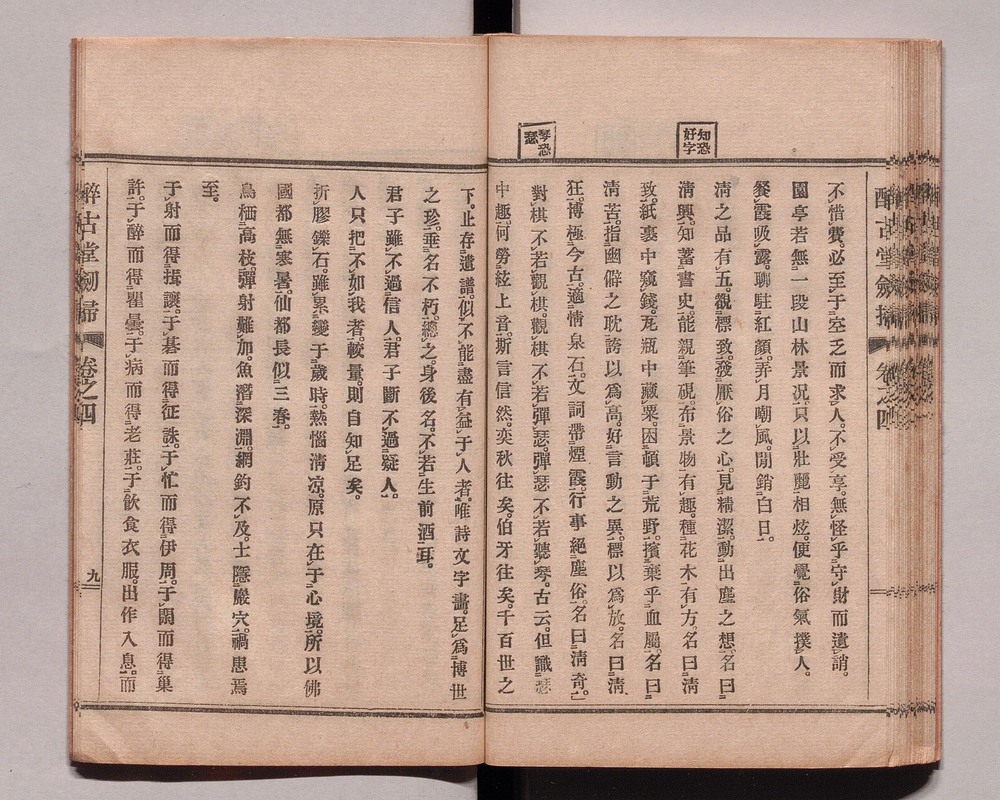 知恐
好字
琴恐
瑟
醉古堂劍掃 卷之四
不惜費。必至于空乏而求人。不受享。無怪乎守財而遺誚。
園亭若無一段山林景况。只以壯麗相炫。便覺俗氣撲人。
餐霞吸露。聊駐紅顏。弄月嘲風。閒銷白日。
清之品有五。覩標致。發厭俗之心。見精潔。動出塵之想。名曰
清興。知蓄書史。能親筆硯。布景物有趣。種花木有方。名曰清
致。紙裹中窺錢。瓦瓶中藏粟。困頓于荒野。擯棄乎血屬。名曰
清苦。指幽僻之耽。誇以爲高。好言動之異。標以爲放。名曰清
狂。博極今古。適情泉石。文詞帶煙霞。行事絕塵俗。名曰清奇。
對棋不若觀棋。觀棋不若彈瑟。彈瑟不若聽琴。古云。但識瑟
中趣。何勞絃上音。斯言信然。奕秋往矣。伯牙往矣。千百世之
下。止存遺譜。似不能盡有益于人者。唯詩文字畫。足爲博世
之珍。垂名不朽。總之。身後名。不若生前酒耳。
君子雖不過信人。君子斷不過疑人。
人只把不如我者較量。則自知足矣。
折膠鑠石。雖累變于歲時。熱惱清凉。原只在于心境。所以佛
國都無寒暑。仙都長似三春。
鳥栖高枝。彈射難加。魚潛深淵。網釣不及。士隱巖穴。禍患焉
至。
于射而得揖讓。于棊而得征誅。于忙而得伊周。于閑而得巢
許。于醉而得瞿曇。于病而得老莊。于飲食衣服。出作入息。而
醉古堂劍掃 卷之四 九